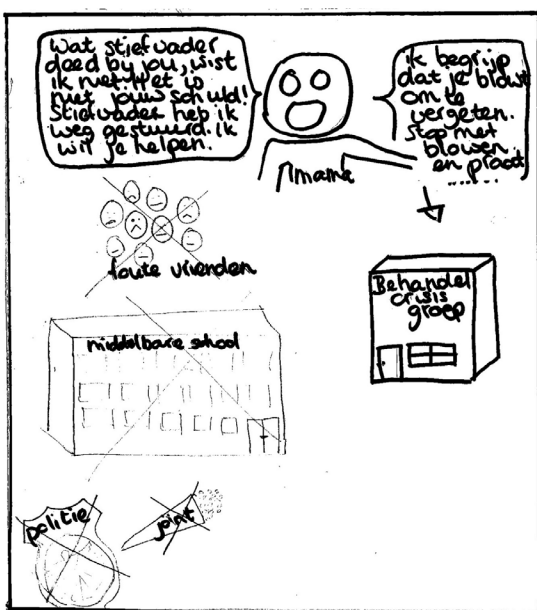 Wat stiefvader
deed by jou, wist
ik niet. Het is
niet jouw schuld!
Stiefvader heb ik
weg gestuurd. Ik
wil je helpen.
ik begrijp
dat je blowt
om te
vergeten.
stop met
blowen
en praat
.......
mama
foute vrienden
Behandel
crisis
groep
middelbare school
politie
joint